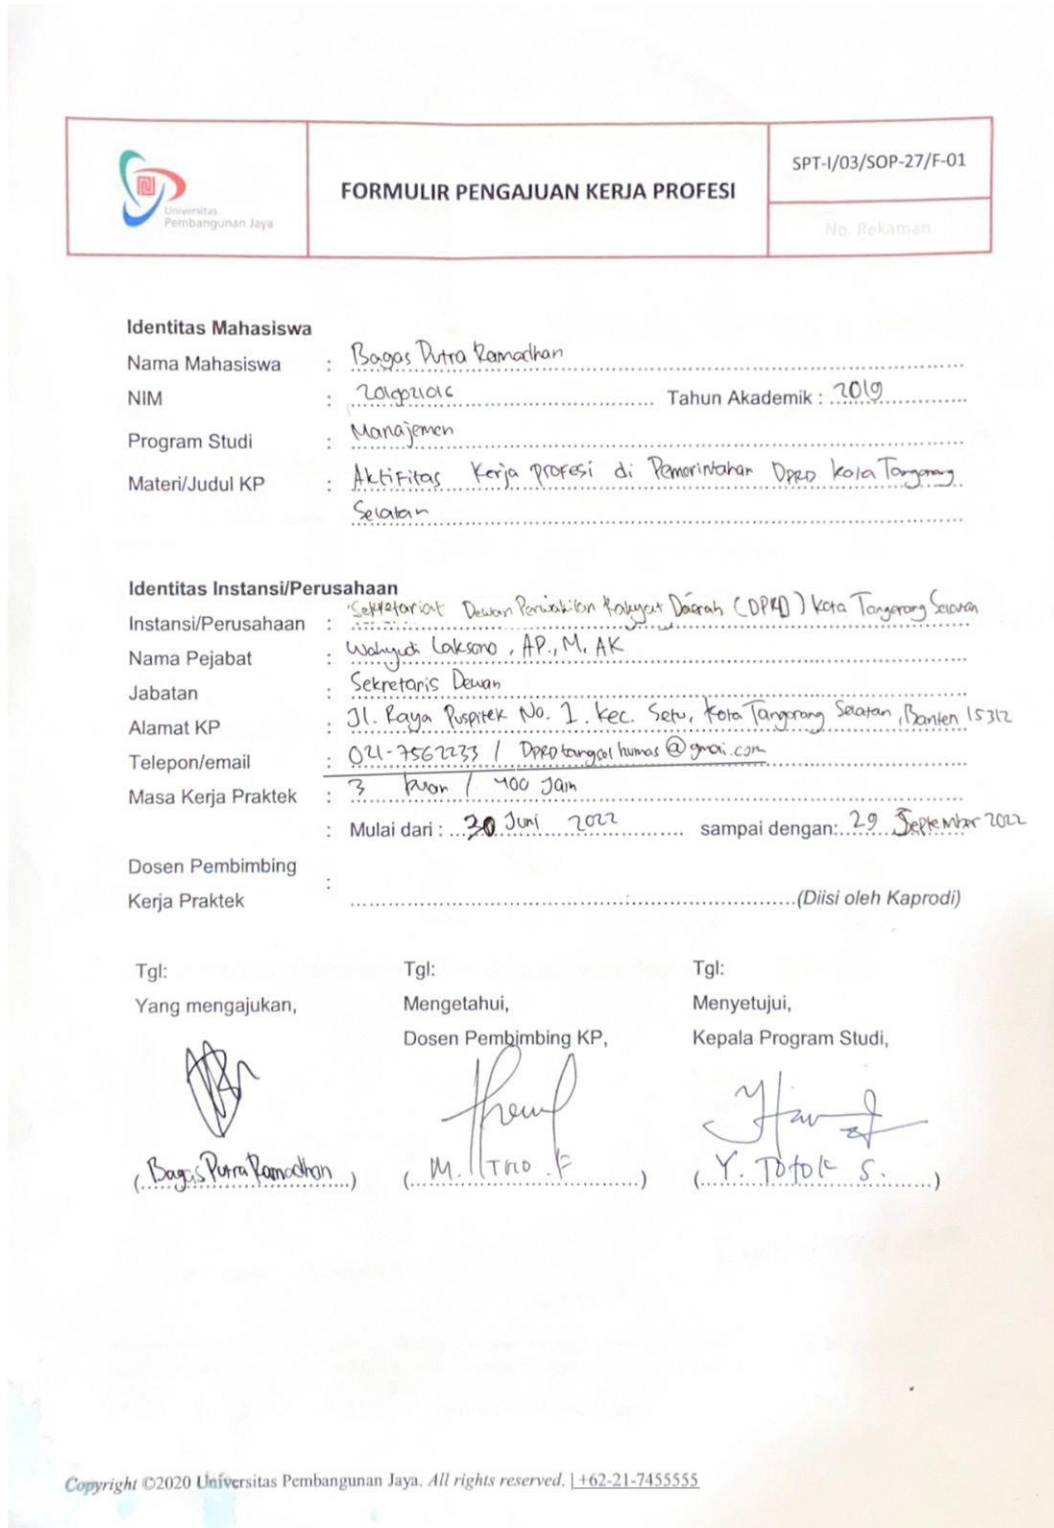 Universitas
Pembangunan Jaya
FORMULIR PENGAJUAN KERJA PROFESI
SPT-I/03/SOP-27/F-01
No. Rekaman
Identitas Mahasiswa
Nama Mahasiswa : Bagas Putra Ramadhan
NIM : Tahun Akademik : 2019
Program Studi : Manajemen
Materi/Judul KP : Aktifitas Kerja profesi di Pemerintahan DPRD Kota Tangerang
Selatan
Identitas Instansi/Perusahaan
Instansi/Perusahaan : Sekretariat Dewan Perwakilan Rakyat Daerah (DPRD) Kota Tangerang Selatan
Nama Pejabat : Wahyudi Laksono, AP., M. AK
Jabatan : Sekretaris Dewan
Alamat KP : Jl. Raya Puspitek No. 1. Kec. Setu, Kota Tangerang Selatan, Banten 15312
Telepon/email : 021-7562233 / DPRDtangselhumas@gmai.com
Masa Kerja Praktek : 3 / 400 Jam
: Mulai dari : 30 Juni 2022 sampai dengan: 29 September 2022
Dosen Pembimbing
Kerja Praktek : (Diisi oleh Kaprodi)
Tgl: Tgl: Tgl:
Yang mengajukan, Mengetahui, Menyetujui,
Dosen Pembimbing KP, Kepala Program Studi,
(Bagas Putra Ramadhan) (M. F) (Y. Totok S.)
Copyright ©2020 Universitas Pembangunan Jaya. All rights reserved. | +62-21-7455555